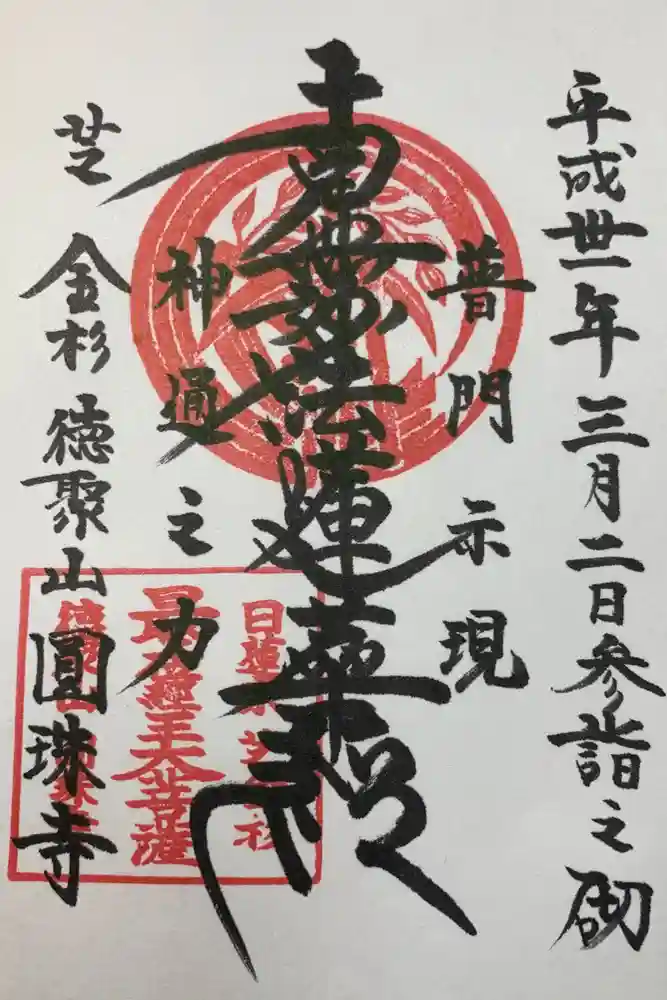 平成丗一年三月二日参詣之砌
普門示現
南無妙法蓮華経
神通之力
芝 金杉 徳聚山 圓珠寺
日蓮宗 芝金杉
王大菩薩